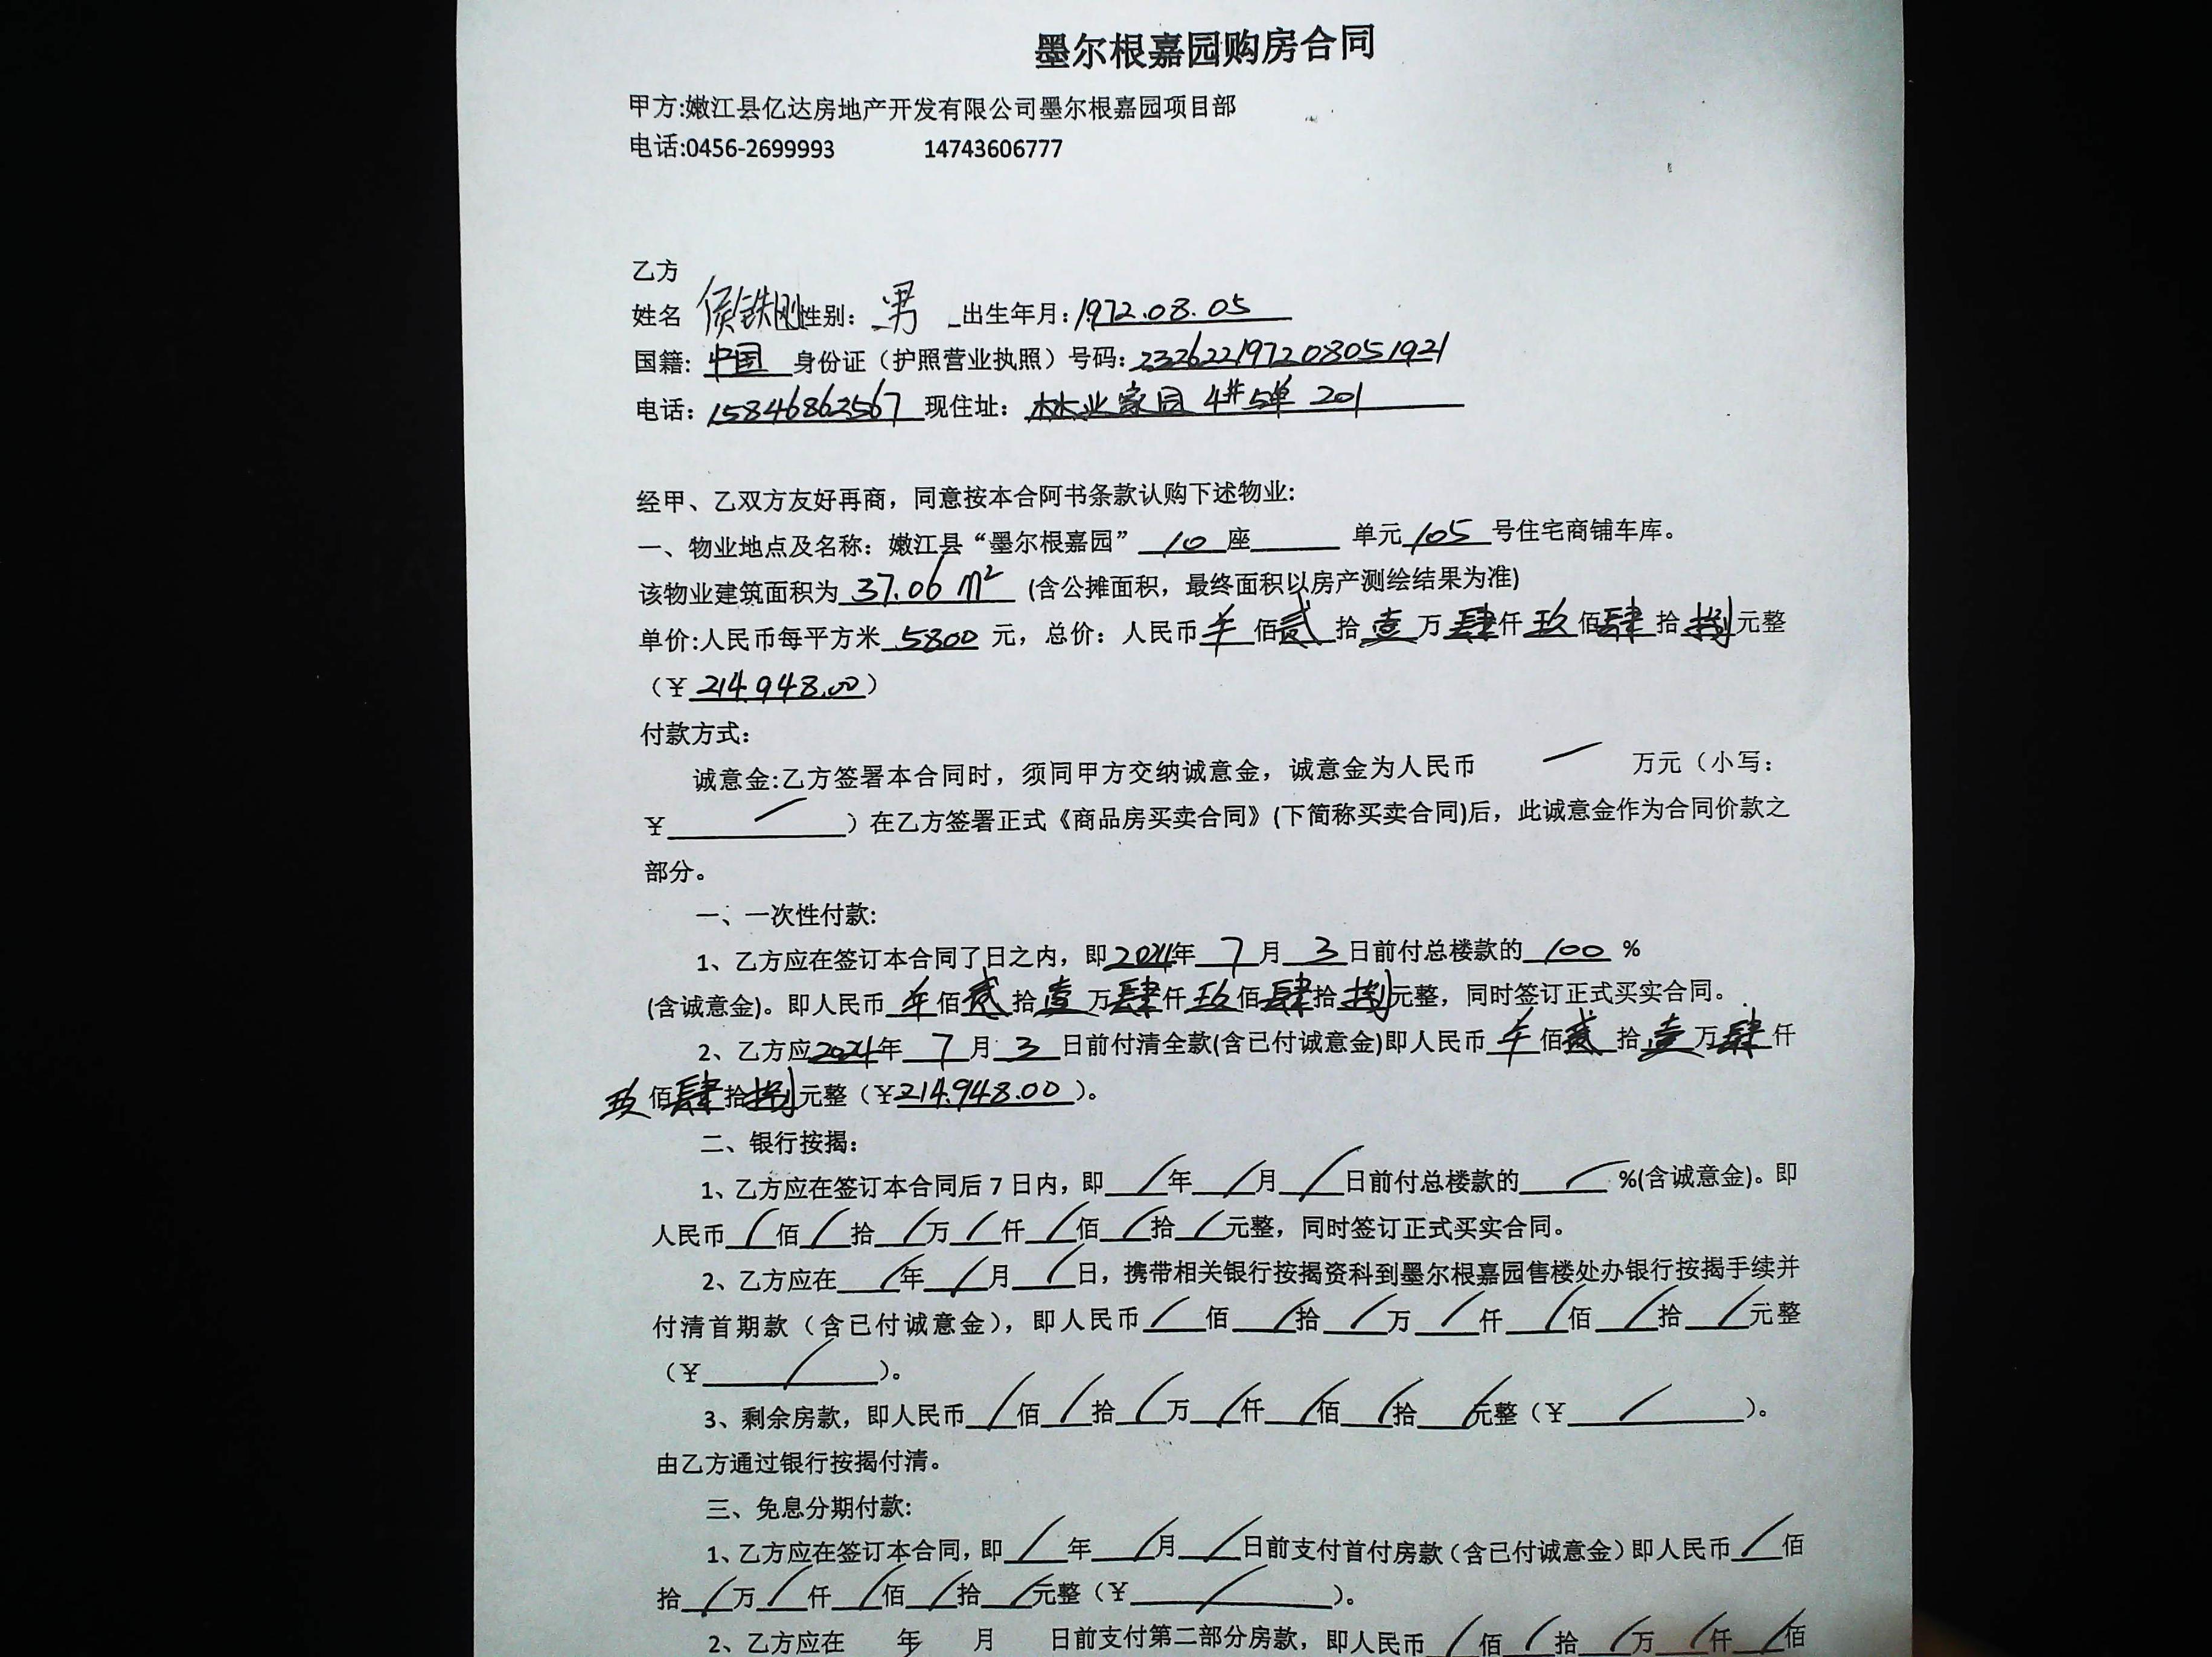 墨尔根嘉园购房合同
甲方:嫩江县亿达房地产开发有限公司墨尔根嘉园项目部
电话:0456-2699993 14743606777
乙方
姓名 侯铁刚 性别: 男 出生年月: 1972.08.05
国籍: 中国 身份证（护照营业执照）号码: 232622197208051921
电话: 15846862567 现住址: 林业家园 4# 5单 201
经甲、乙双方友好再商，同意按本合阿书条款认购下述物业:
一、物业地点及名称: 嫩江县“墨尔根嘉园” 10 座 单元 105 号住宅商铺车库。
该物业建筑面积为 37.06 m² (含公摊面积，最终面积以房产测绘结果为准)
单价:人民币每平方米 5800 元，总价: 人民币 佰 贰 拾 壹 万 肆 仟 玖 佰 肆 拾 捌 元整
（¥ 214948.00）
付款方式:
诚意金:乙方签署本合同时，须同甲方交纳诚意金，诚意金为人民币 / 万元（小写:
¥ / ）在乙方签署正式《商品房买卖合同》(下简称买卖合同)后，此诚意金作为合同价款之
部分。
一、一次性付款:
1、乙方应在签订本合同了日之内，即 年 7 月 3 日前付总楼款的 100 %
(含诚意金)。即人民币 佰 贰 拾 壹 万 肆 仟 玖 佰 肆 拾 捌 元整，同时签订正式买实合同。
2、乙方应 年 7 月 3 日前付清全款(含已付诚意金)即人民币 佰 贰 拾 壹 万 肆 仟
玖 佰 肆 拾 捌 元整（¥214948.00）。
二、银行按揭:
1、乙方应在签订本合同后 7 日内，即 / 年 / 月 / 日前付总楼款的 / %(含诚意金)。即
人民币 / 佰 / 拾 / 万 / 仟 / 佰 / 拾 / 元整，同时签订正式买实合同。
2、乙方应在 / 年 / 月 / 日，携带相关银行按揭资科到墨尔根嘉园售楼处办银行按揭手续并
付清首期款（含已付诚意金），即人民币 / 佰 / 拾 / 万 / 仟 / 佰 / 拾 / 元整
（¥ / ）。
3、剩余房款，即人民币 / 佰 / 拾 / 万 / 仟 / 佰 / 拾 / 元整（¥ / ）。
由乙方通过银行按揭付清。
三、免息分期付款:
1、乙方应在签订本合同，即 / 年 / 月 / 日前支付首付房款（含已付诚意金）即人民币 / 佰
拾 / 万 / 仟 / 佰 / 拾 / 元整（¥ / ）。
2、乙方应在 年 月 日前支付第二部分房款，即人民币 / 佰 / 拾 / 万 / 仟 / 佰